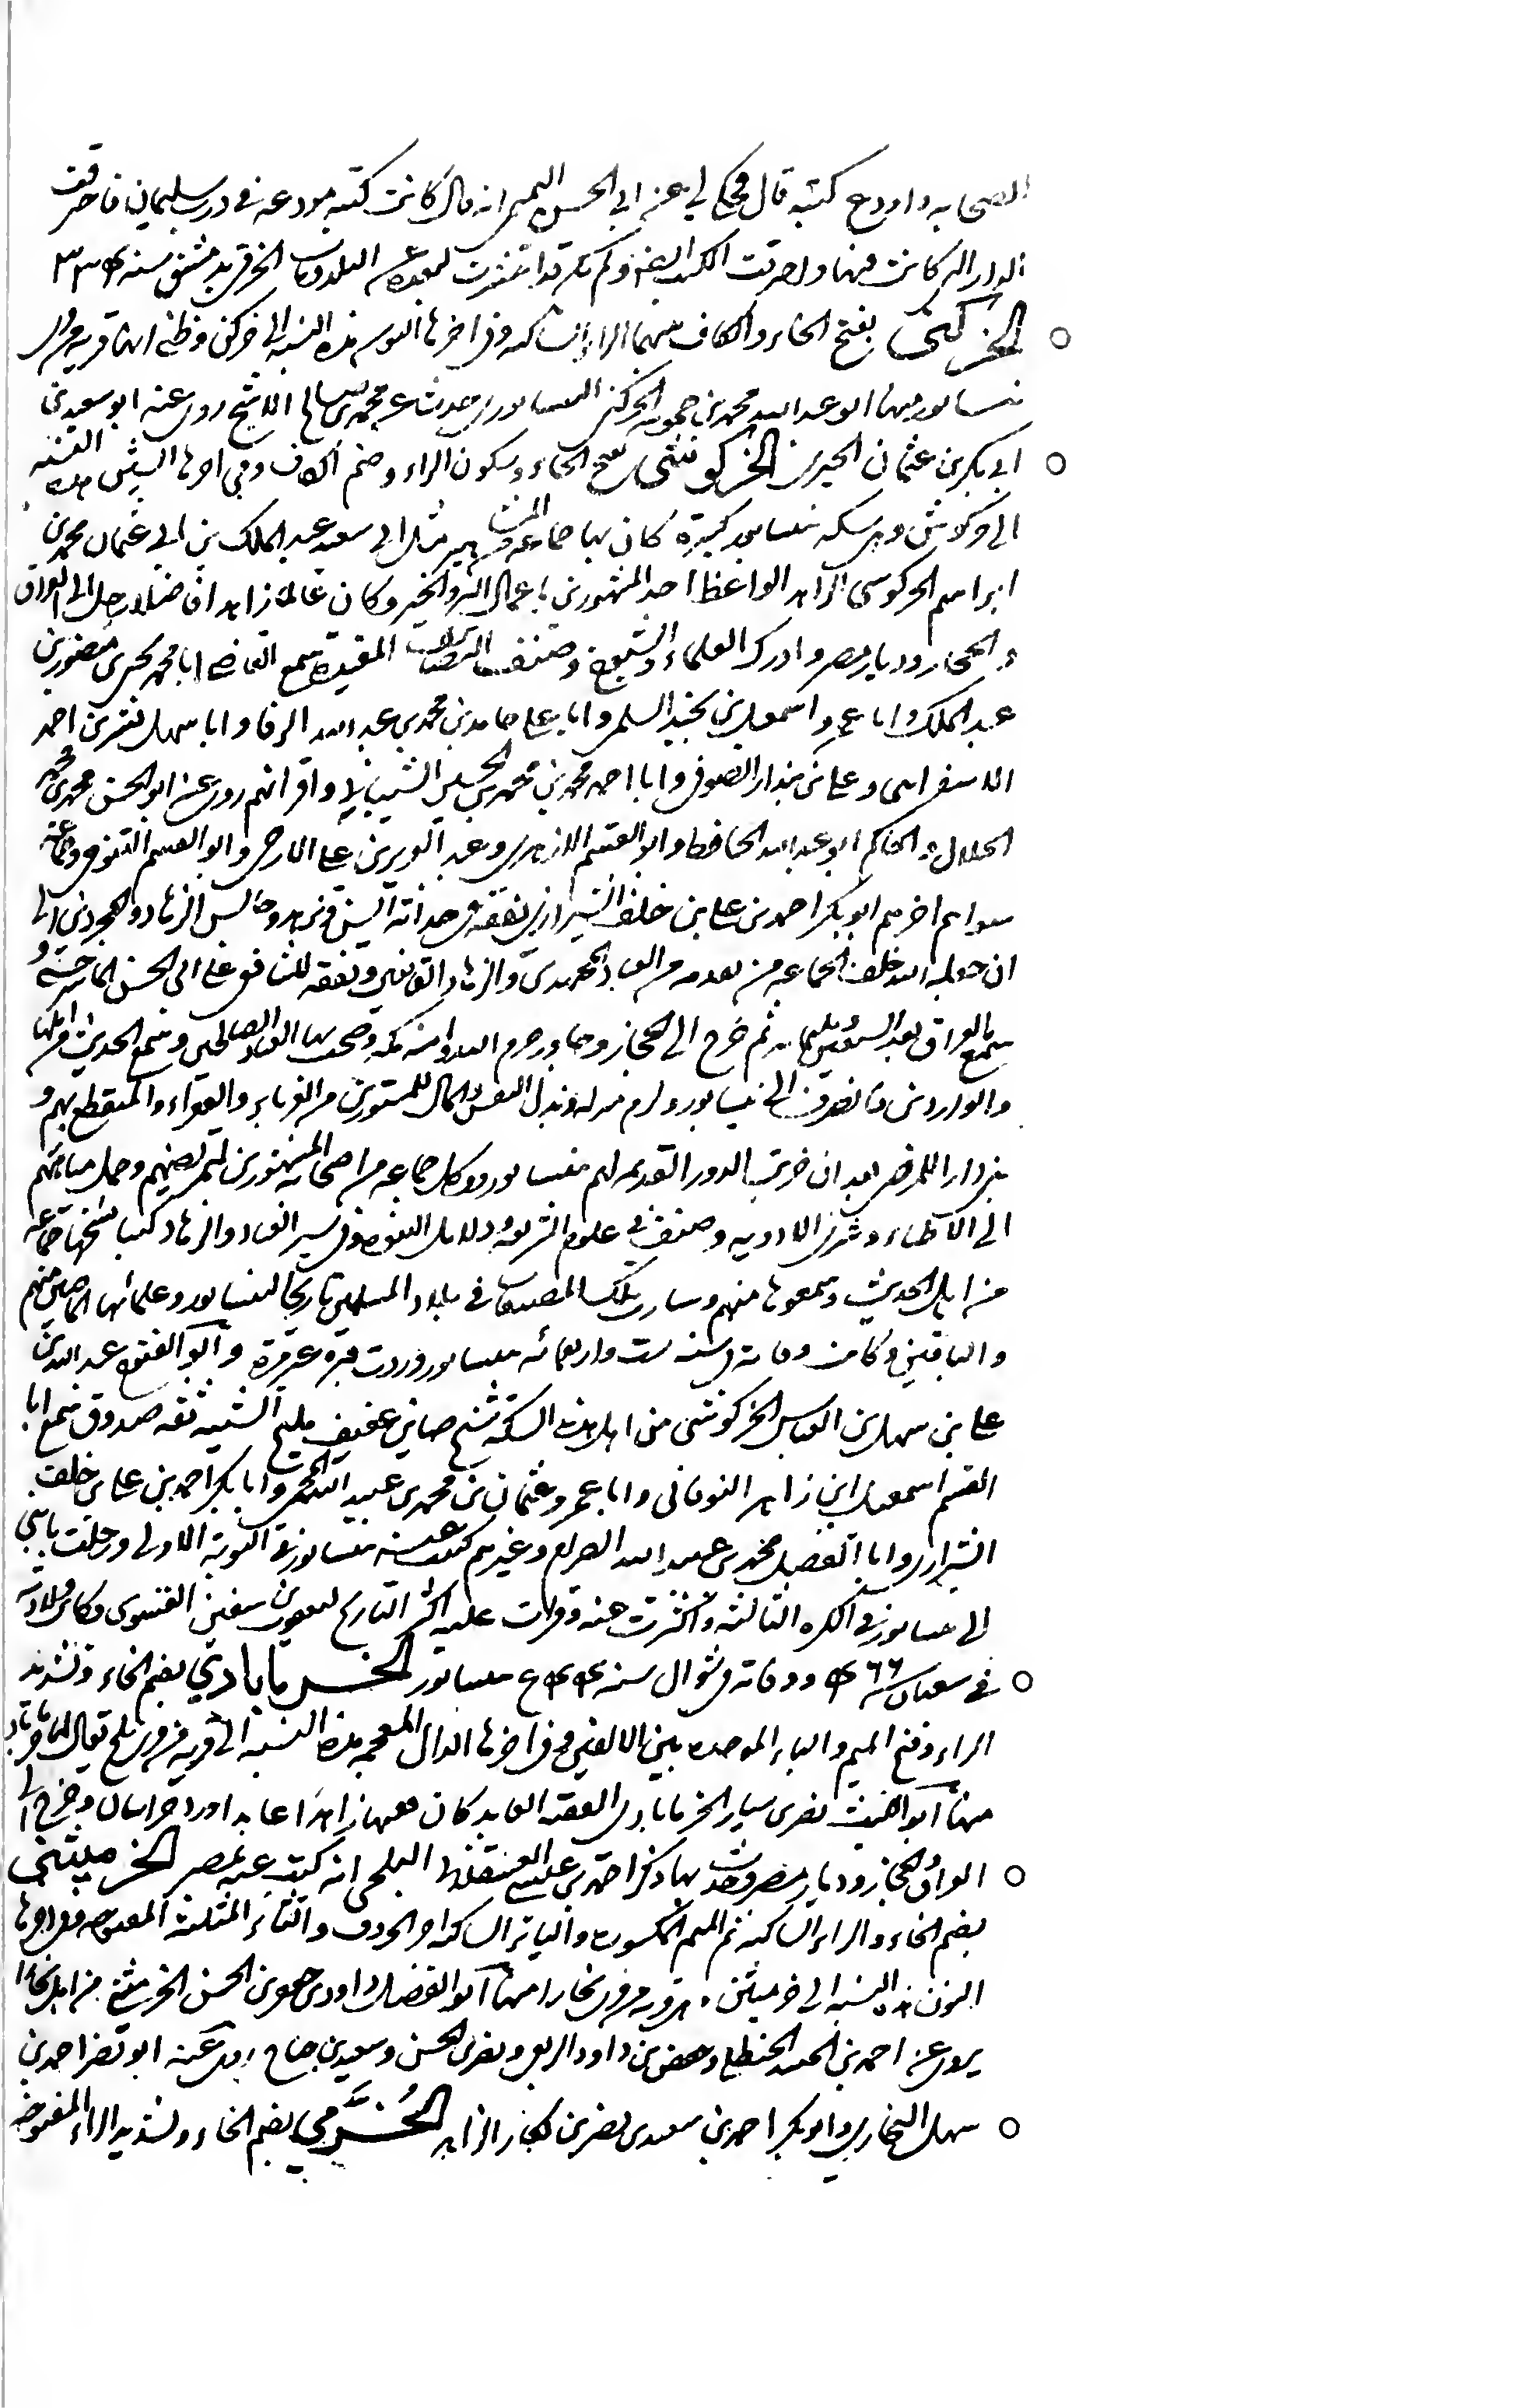 الصحابه واودع كتبه قال فحكي لي عن ابي الحسن التميمي انه قال كانت كتبه مودعه في درب سليمان فاحترقت
الدار التي كانت فيها واحترقت الكتب التي ولم تكن قد انتشرت لبعده عن البلد ومات الخرقي بدمشق سنه ٣٣٤
الخركني بفتح الخاء والكاف بينهما الراء الساكنه وفي اخرها النون هذه النسبه الي خركن وظني انها قريه من قري
نيسابور منها ابو عبد الله محمد بن حمويه الخركني النيسابوري حدث عن محمد بن صالح الاشج روي عنه ابو سعيد بن
ابي بكر بن عثمان الحيري الخركوشي بفتح الخاء وسكون الراء وضم الكاف وفي اخرها الشين هذه النسبه
الي خركوش وهي سكه بنيسابور كبيرة كان بها جماعة من المشاهير مثل ابي سعد عبد الملك بن ابي عثمان محمد بن
ابراهيم الخركوشي الزاهد الواعظ احد المشهورين باعمال البر والخير وكان عالما زاهدا فاضلا رحل الي العراق
والحجاز وديار مصر وادرك العلماء والشيوخ وصنف التصانيف المفيدة سمع القاضي ابا محمد يحيى بن منصور بن
عبد الملك وابا عمرو اسمعيل بن نجيد السلمي وابا علي حامد بن محمد بن عبد الله الرفا وابا سهل بشر بن احمد
الاسفرايني وعلي بن بندار الصوفي وابا احمد محمد بن محمد بن الحسن الشيباني واقرانهم روي عنه ابو الحسن محمد بن محمد
الخلال والحاكم ابو عبد الله الحافظ وابو القسم الازهري وعبد العزيز بن علي الازجي وابو القسم التنوخي وجماعة
سواهم اخرهم ابو بكر احمد بن علي بن خلف الشيرازي تفقه في حداثة السن وتزهد وجالس الزهاد والمجردين الي
ان جعله الله خلف الجماعه من تقدمه من العباد المجتهدين والزهاد القانعين وتفقه للشافعي علي ابي الحسن الماسرجسي و
سمع بالعراق بعد السبعين وثلثمايه ثم خرج الي الحجاز وجاور حرم الله وامنه مكه وصحب بها العباد الصالحين وسمع الحديث من اهلها
والواردين وانصرف الي نيسابور ولزم منزله وبذل النفس والمال للمستورين من الغرباء والفقراء والمنقطع بهم و
بني دارا للمرضي بعد ان خربت الدور القديمه لهم بنيسابور ووكل جماعه من اصحابه المشهورين بتمريضهم وحمل مياههم
الي الاطباء وشري الادويه وصنف في علوم الشريعه ودلايل النبوه وفي سير العباد والزهاد كتبا نسخها جماعه
من اهل الحديث وسمعوها منهم وسارت تلك المصنفات في بلاد المسلمين تاريخا لنيسابور وعلمائها الماضين منهم
والباقين وكانت وفاته في سنه ست واربعمائه بنيسابور وزرت قبره غير مرة وابو الفتوح عبد الله بن
علي بن سهل بن العباس الخركوشي من اهل هذه السكه شيخ صاين عفيف مليح الشيبه ثقه صدوق سمع ابا
القسم اسمعيل بن زاهر النوقاني وابا عمرو عثمان بن محمد بن عبيد الله المحمي وابا بكر احمد بن علي بن خلف
الشيرازي وابا الفضل محمد بن عبيد الله الصرام وغيرهم كتبت عنه بنيسابور في النوبة الاولي ورحلت بابني
الي نيسابور في الكره الثالثه واكثرت عنه وقرات عليه اكثر التاريخ ليعقوب بن سفين الفسوي وكانت ولادته
في شعبان سنه ٤٦٦ ووفاته في شوال سنه ٥٤٤ بنيسابور الخرماباذي بضم الخاء وتشديد
الراء وفتح الميم والباء الموحده بين الالفين وفي اخرها الدال المعجمه هذه النسبه الي قريه من قري بلخ يقال لها خرماباذ
منها ابو الليث نصر بن سيار الخرماباذي الفقيه العابد كان فقيها زاهدا عابدا ورد خراسان وخرج الي
العراق والحجاز وديار مصر وحدث بها ذكر احمد بن علي البلخي انه كتب عنه بمصر الخرميثني
بضم الخاء والراء الساكنه ثم الميم المكسوره والياء الساكنه اخر الحروف والثاء المثلثه المفتوحه وفي اخرها
النون هذه النسبه الي خرميثن وهي قريه من قري بخارا منها ابو الفضل داود بن جعفر بن الحسن الخرميثني من اهل بخارا
يروي عن احمد بن الجنيد الحنظلي وحفص بن داود الربعي ونصر بن الحسن وسعيد بن جناح روي عنه ابو نصر احمد بن
سهل البخاري وابو بكر احمد بن سعد بن نصر بن بكار الزاهد الخُرَّمي بضم الخاء وتشديد الراء المفتوحه